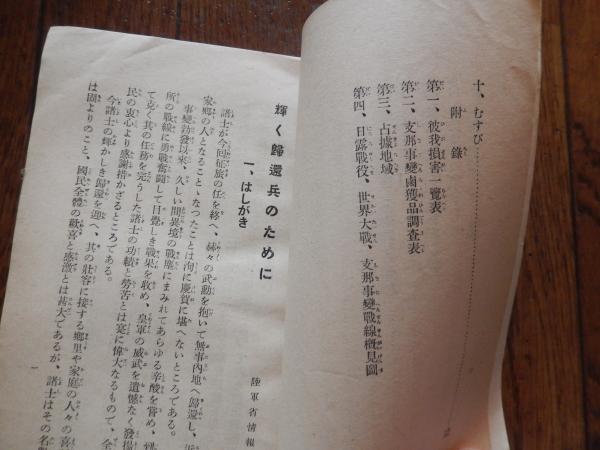 十、むすび
附錄
第一、彼我損害一覽表
第二、支那事變鹵獲品調查表
第三、占據地域
第四、日露戰役、世界大戰、支那事變戰線槪見圖
輝く歸還兵のために
陸軍省情報
一、はしがき
諸士が今回征旅の任を終へ、赫々の武勳を抱いて無事內地へ歸還し、
家鄕の人となることゝなつたことは洵に慶賀に堪へないところである。
事變勃發以來、久しい間異境の戰塵にまみれてあらゆる辛酸を嘗め、到
所の戰線に勇戰奮鬪して目覺しき戰果を收め、皇軍の威武を遺憾なく發揚
て克く其の任務を完うした諸士の功績と勞苦とは寔に偉大なるもので、全
民の衷心より感謝措かざるところである。
今諸士の輝かしき歸還を迎へ、其の壯容に接する鄕里や家庭の人々の喜
は固よりのこと、國民全體の歡喜と感激とは甚大であるが、諸士はその名